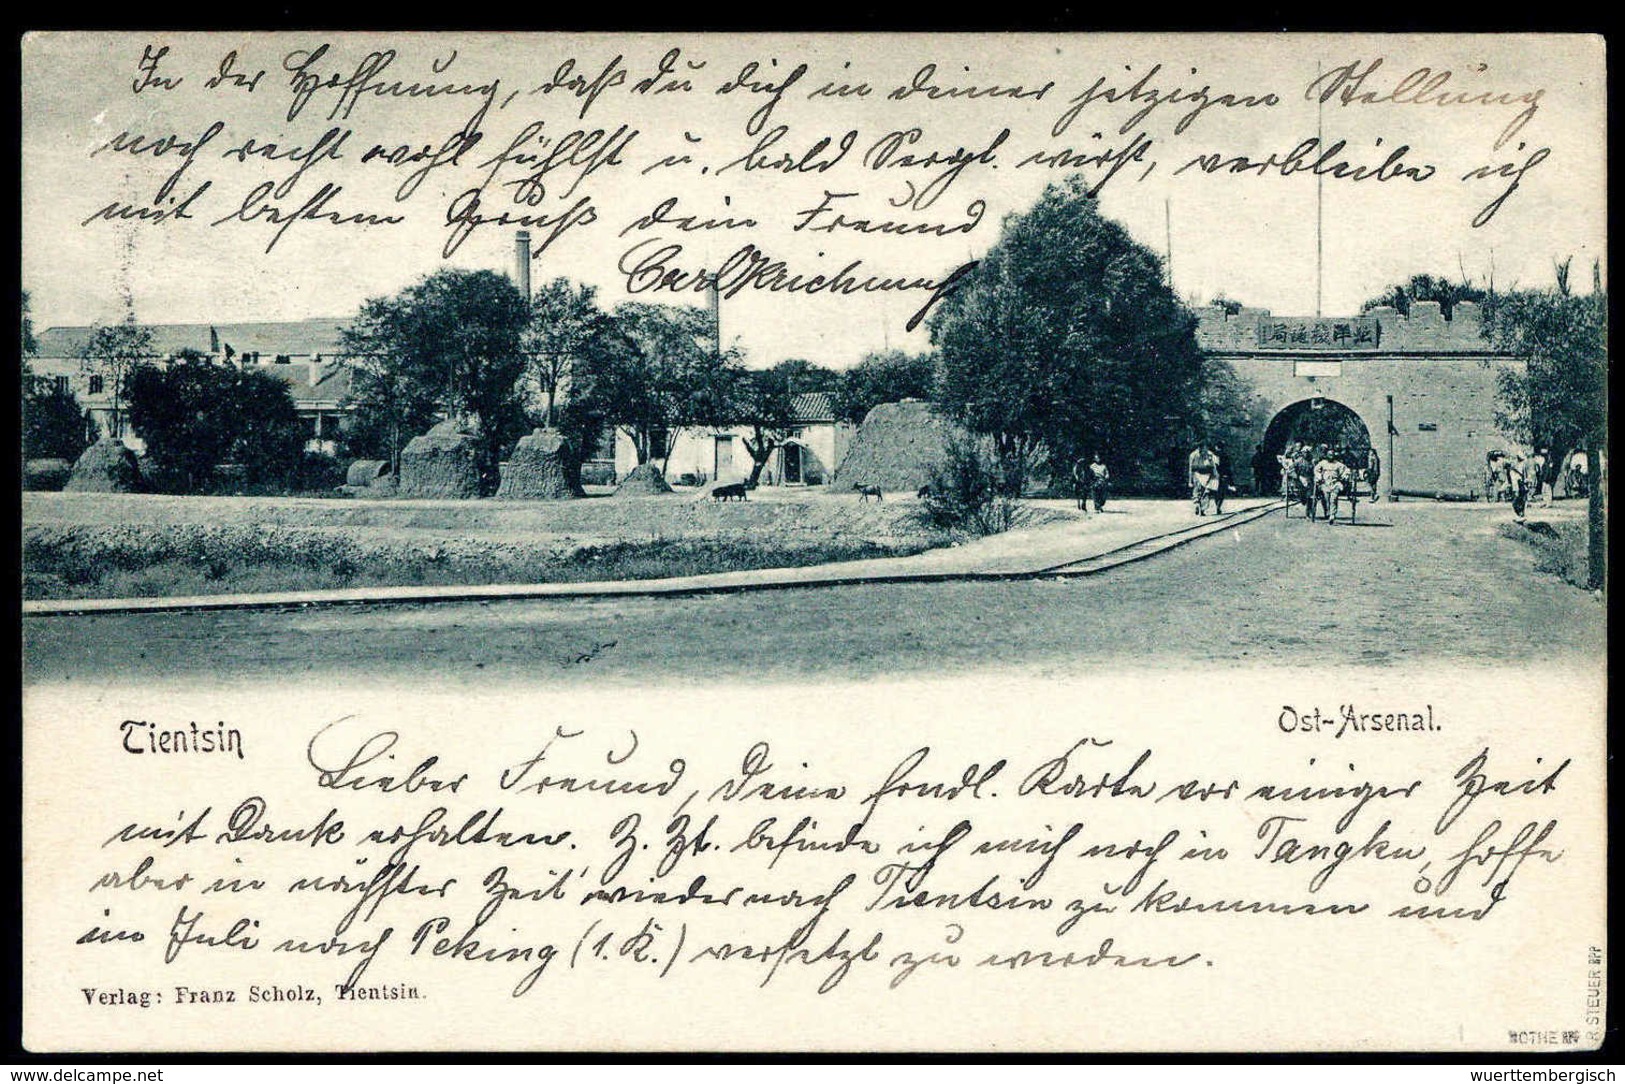 In der Hoffnung, daß Du dich in deiner jetzigen Stellung
noch recht wohl fühlst u. bald Sergt. wirst, verbleibe ich
mit bestem Gruß dein Freund
Carl
北洋機器局
Tientsin
Ost-Arsenal.
Lieber Freund, Deine frndl. Karte vor einiger Zeit
mit Dank erhalten. Z. Zt. befinde ich mich noch in Tangku, hoffe
aber in nächster Zeit wieder nach Tientsin zu kommen und
im Juli nach Peking (1. K.) versetzt zu werden.
Verlag: Franz Scholz, Tientsin.
R. STEUER BPP
ROTHE BPP
www.delcampe.net
wuerttembergisch